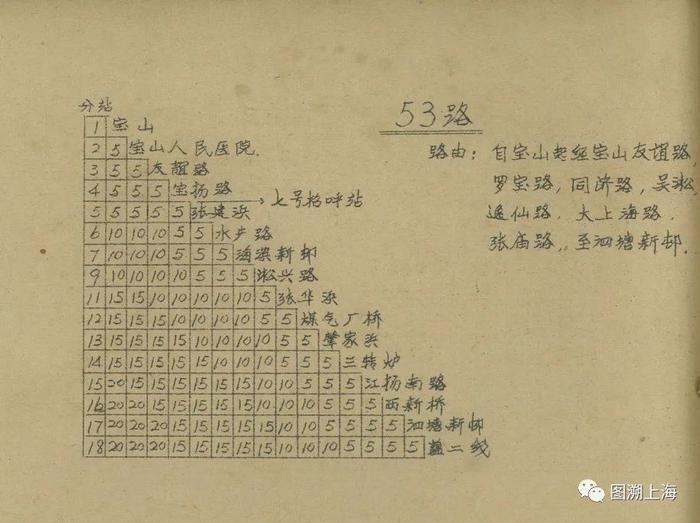 53路
路由：自宝山起经宝山友谊路，
罗宝路，同济路，吴淞
逸仙路，大上海路，
张庙路，至泗塘新邨.
分站
1 宝山
2 5 宝山人民医院.
3 5 5 友谊路
4 5 5 5 宝杨路
5 5 5 5 5 张建浜 → 七号招呼站
6 10 10 10 5 5 水产路
7 10 10 10 5 5 5 海滨新邨
9 10 10 10 10 5 5 5 淞兴路
11 15 15 10 10 10 10 10 5 张华浜
12 15 15 15 10 10 10 10 5 5 煤气厂桥
13 15 15 15 15 10 10 10 10 5 5 肇家浜
14 15 15 15 15 15 15 10 10 5 5 5 三转炉
15 20 15 15 15 15 15 15 10 10 5 5 5 江杨南路
16 20 20 15 15 15 15 15 10 10 10 5 5 5 西新桥
17 20 20 20 15 15 15 15 15 10 10 5 5 5 5 泗塘新邨
18 20 20 20 15 15 15 15 15 10 10 10 5 5 5 5 二线
图溯上海